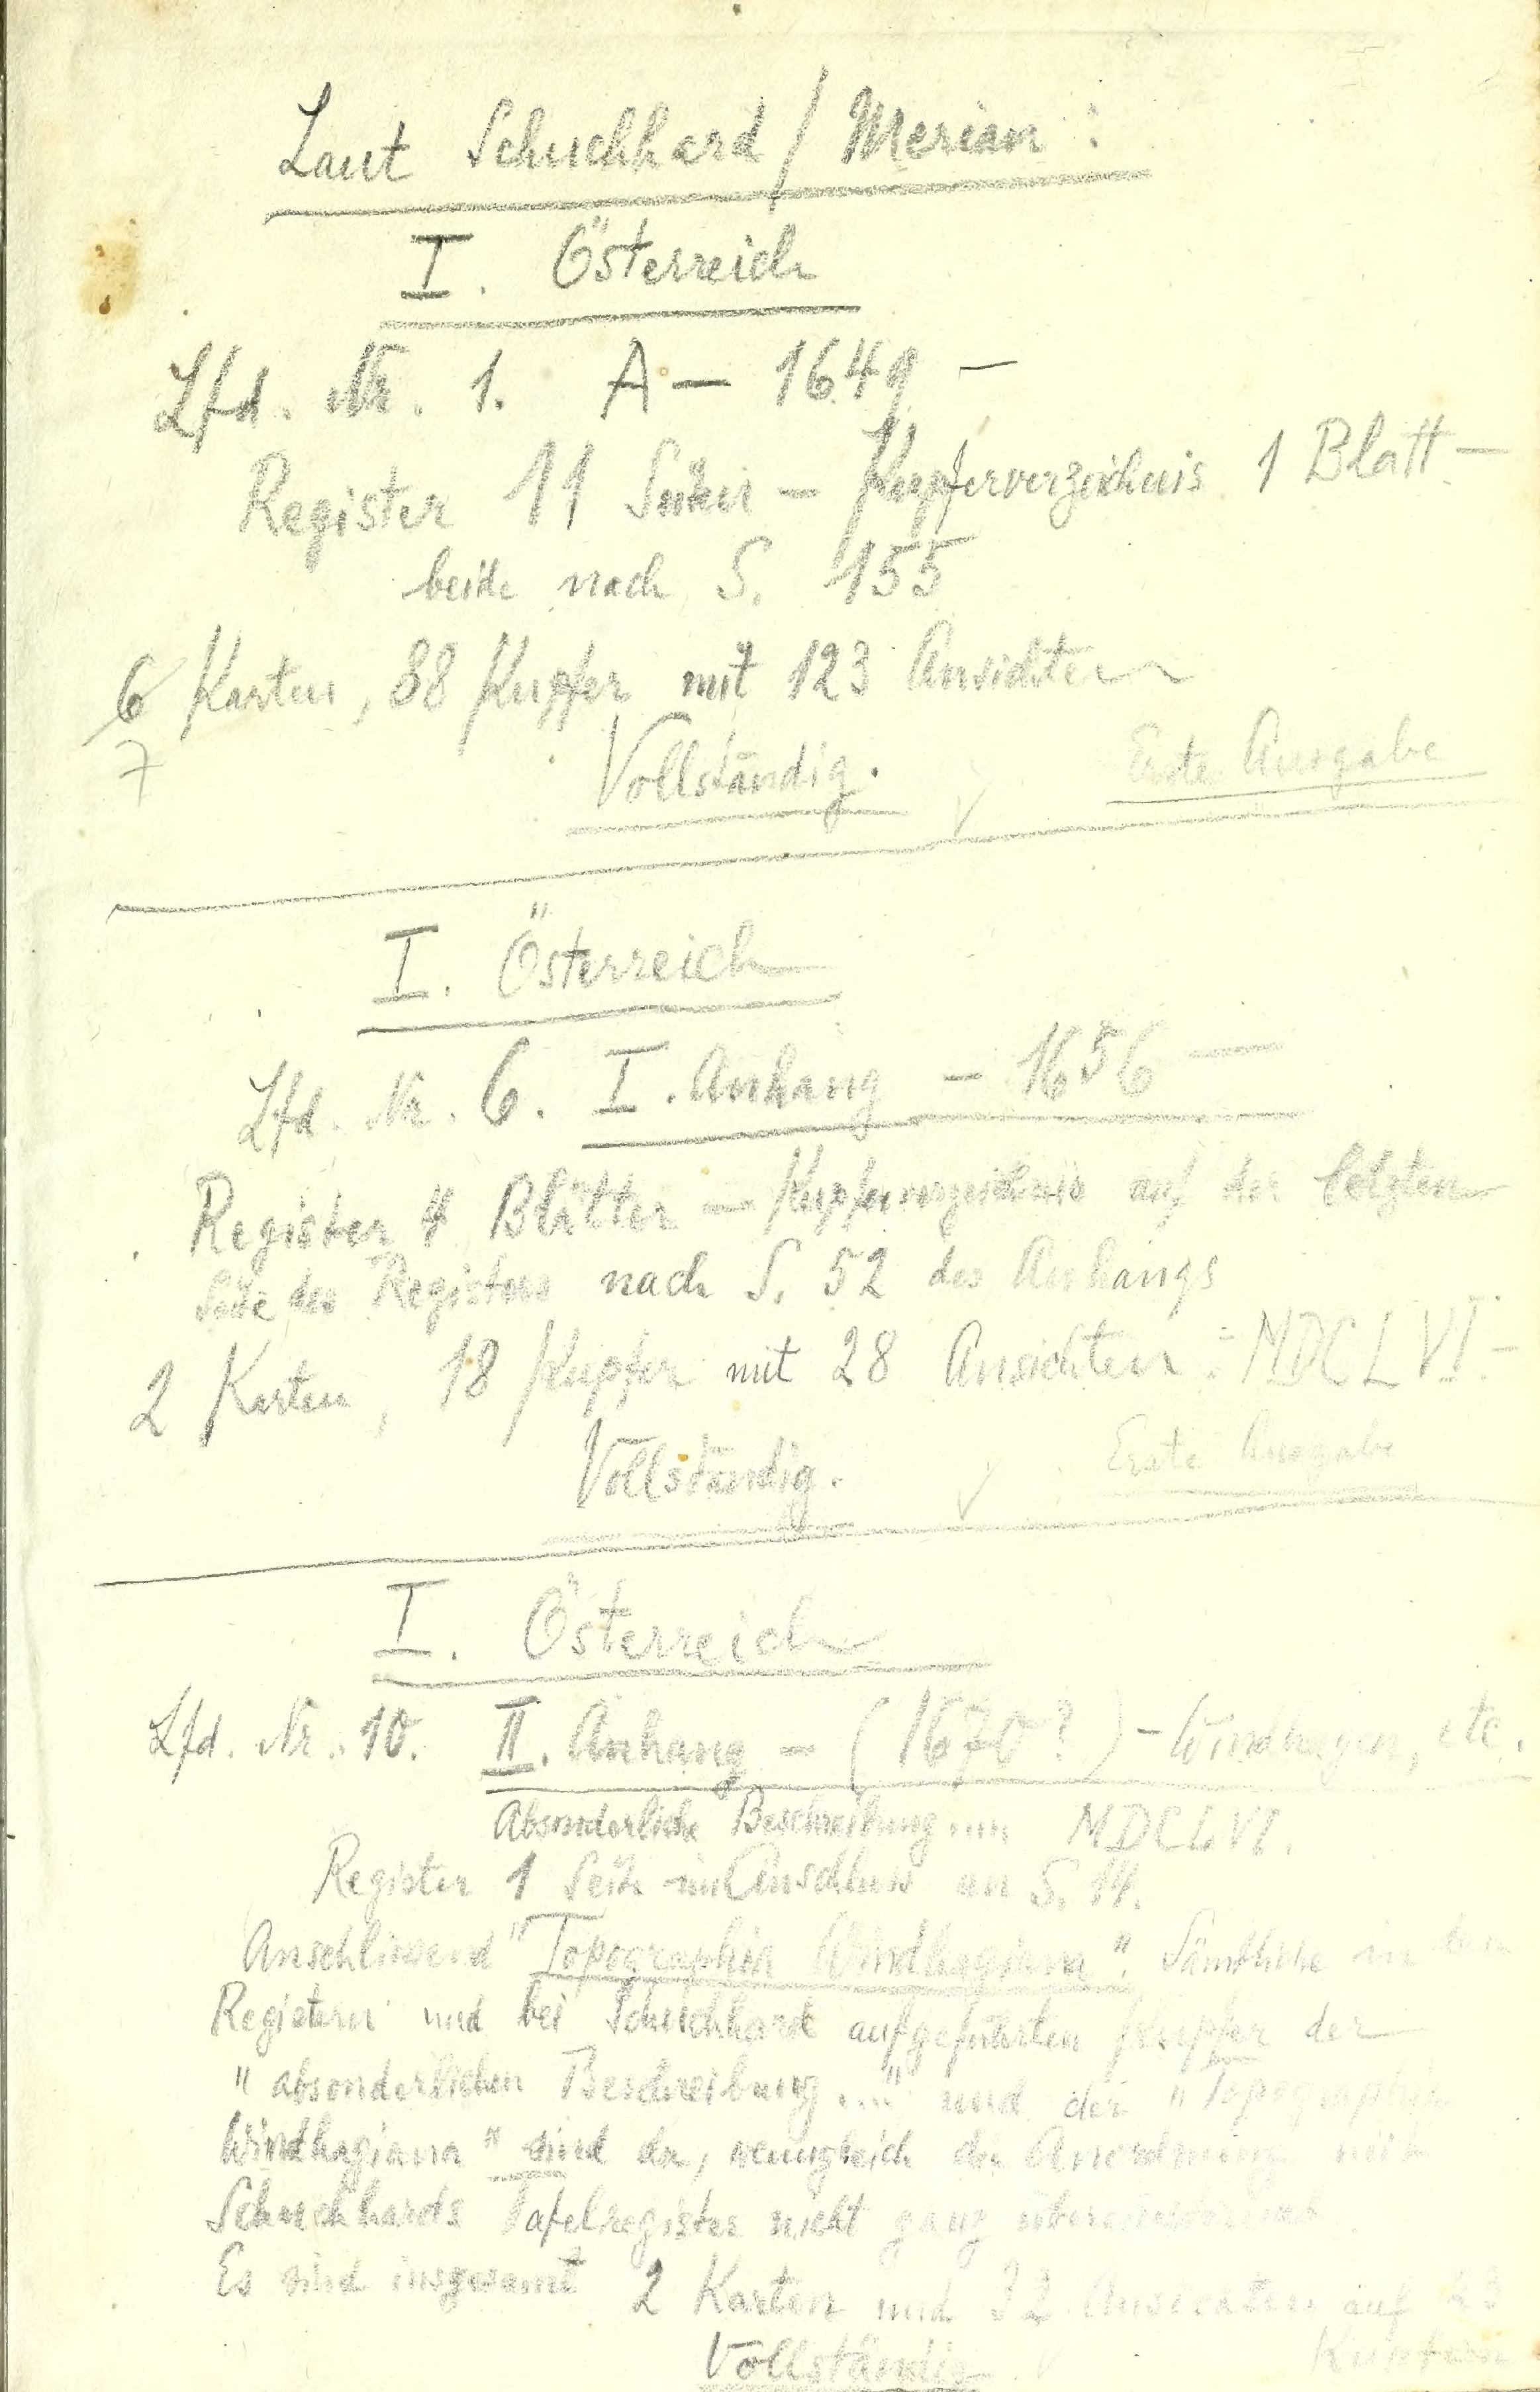 Laut Schuchhard / Merian :
I. Österreich
Lfd. Nr. 1. A — 1649 —
Register 11 Seiten — Kupferverzeichnis 1 Blatt —
beide nach S. 155
6 Karten, 88 Kupfer mit 123 Ansichten
7
Vollständig. ✓ Erste Ausgabe
I. Österreich
Lfd. Nr. 6. I. Anhang — 1656 —
Register 4 Blätter — Kupferverzeichnis auf der letzten
Seite des Registers nach S. 52 des Anhangs
2 Karten, 18 Kupfer mit 28 Ansichten : MDCLVI —
Vollständig. ✓ Erste Ausgabe
I. Österreich
Lfd. Nr. 10. II. Anhang — (1670?) — Windhagen, etc.
Absonderliche Beschreibung .... MDCLVI.
Register 1 Seite im Anschluss an S. 14.
Anschliessend "Topographia Windhagiana". Sämtliche in
Registern und bei Schuchhard aufgeführten Kupfer der
"absonderlichen Beschreibung...." und der "Topographia
Windhagiana" sind da, wenngleich die Anordnung mit
Schuchhards Tafelregister nicht ganz übereinstimmt.
Es sind insgesamt 2 Karten und 32 Ansichten auf 23
Kupfern
Vollständig ✓